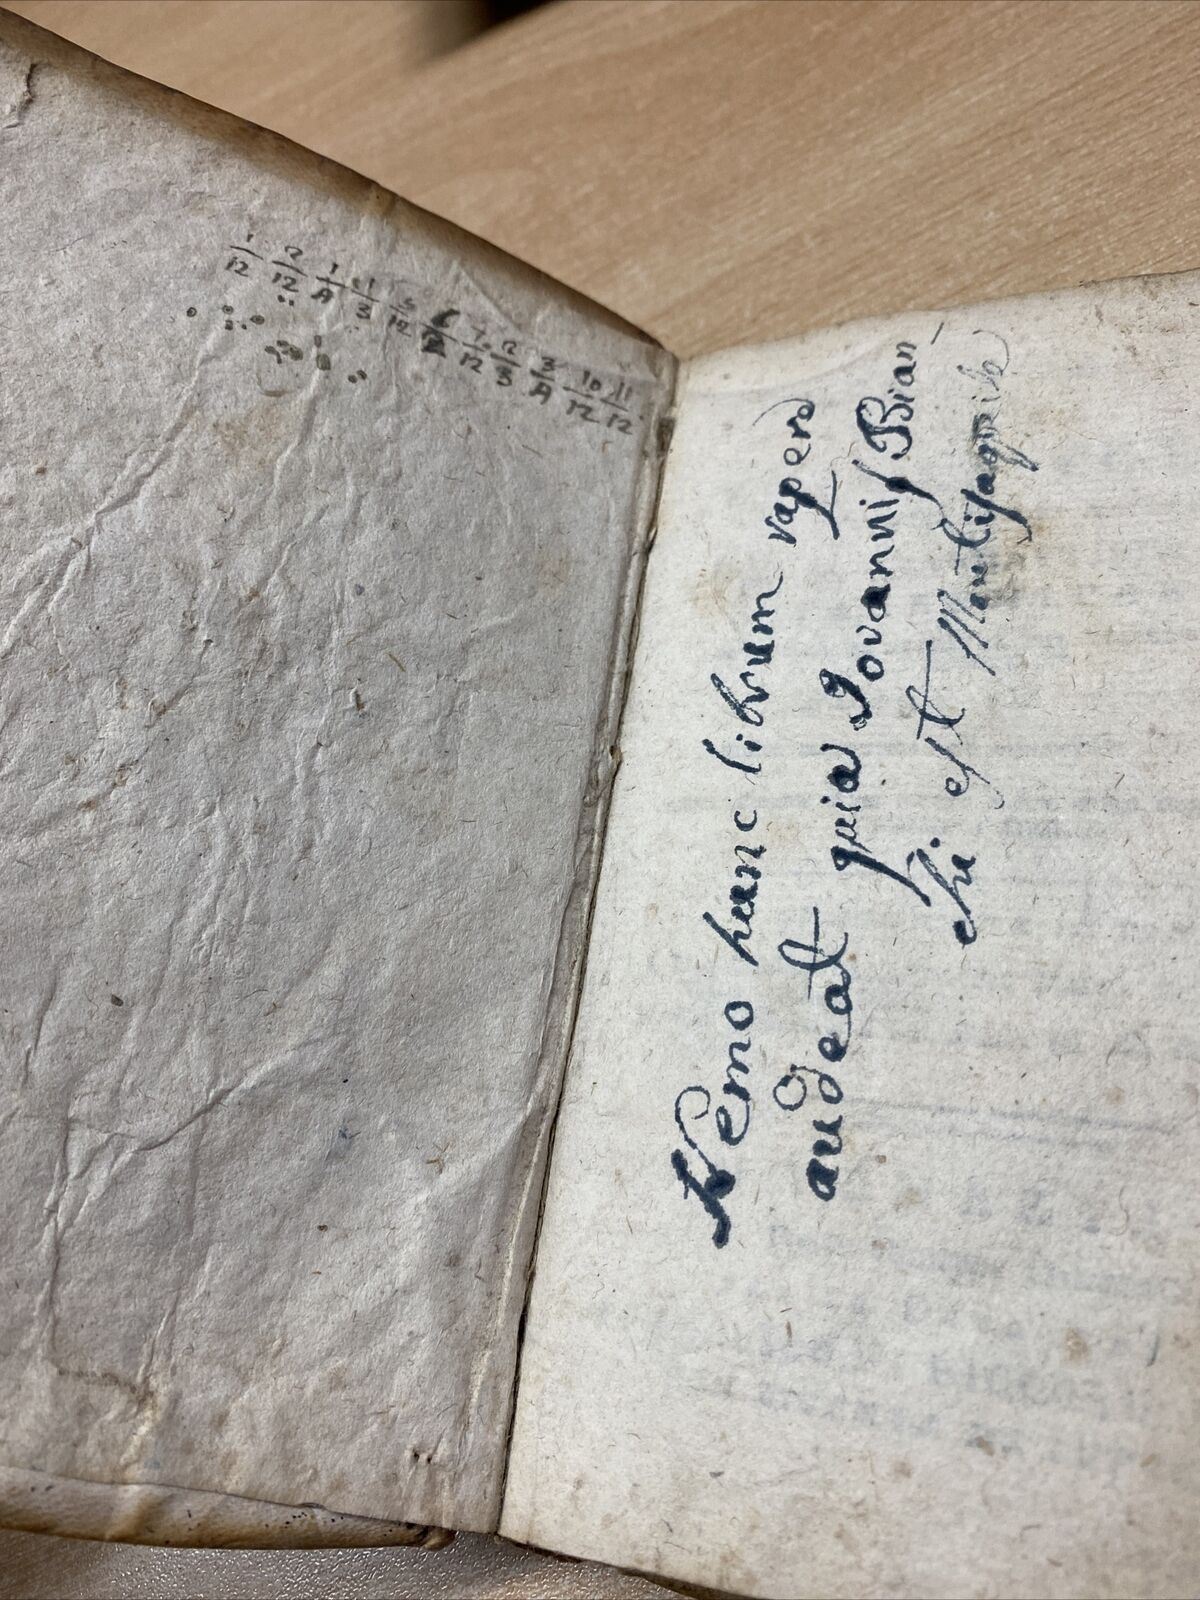 1/12 2/12 1/4 1/3 5/12 7/12 2/3 3/4 10/12 11/12
Nemo hunc librum rapere
audeat quia Jovannis Bian-
chi est